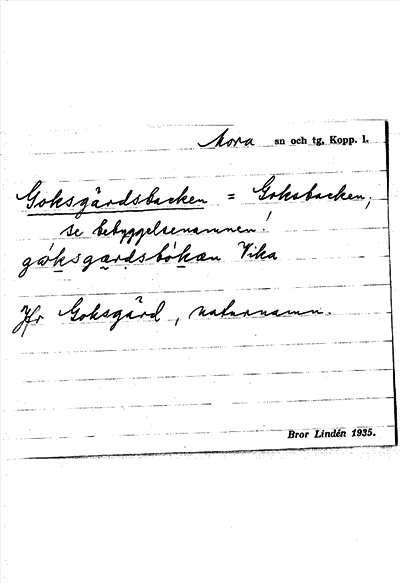 Mora sn och tg. Kopp. l.
Goksgårdsbacken = Goksbacken,
se bebyggelsenamnen!
Vika
Jfr Goksgård, naturnamn.
Bror Lindén 1935.